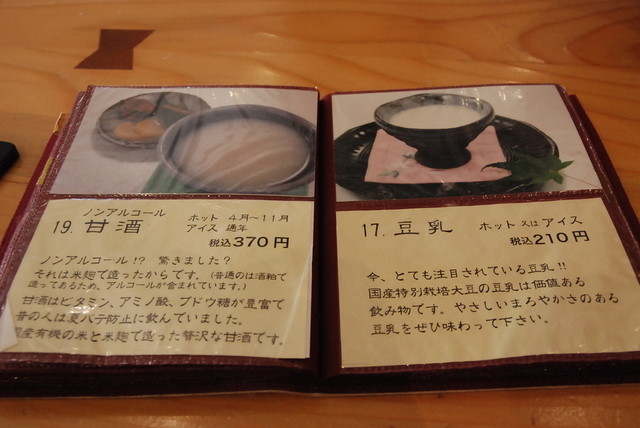 ノンアルコール
19. 甘酒
ホット 4月〜11月
アイス 通年
税込370円
ノンアルコール!? 驚きました?
それは米麹で造ったからです。(普通のは酒粕で
造ってあるため、アルコールが含まれています。)
甘酒はビタミン、アミノ酸、ブドウ糖が豊富で
昔の人は夏バテ防止に飲んでいました。
国産有機の米と米麹で造った贅沢な甘酒です。
17. 豆乳 ホット 又は アイス
税込210円
今、とても注目されている豆乳!!
国産特別栽培大豆の豆乳は価値ある
飲み物です。やさしいまろやかさのある
豆乳をぜひ味わって下さい。